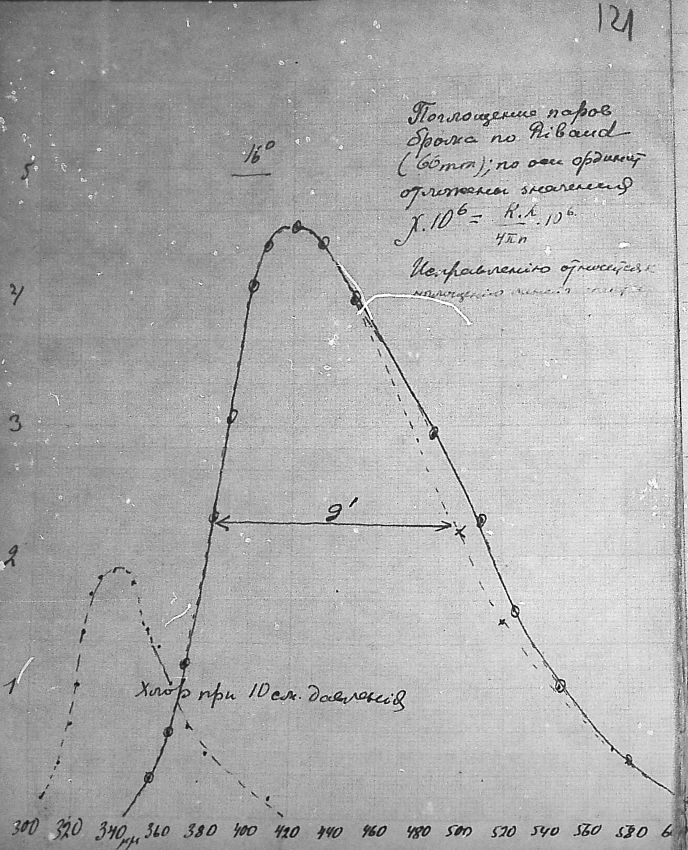 121
Поглощение паров
брома по Ribaud
(60mm); по оси ординат
отложены значения
χ.10⁶ = К.λ/4πn .10⁶.
Исправлению относится к
поглощению
16°
5
4
3
2
1
g'
Хлор при 10 см. давления
300 320 340 μμ 360 380 400 420 440 460 480 500 520 540 560 580